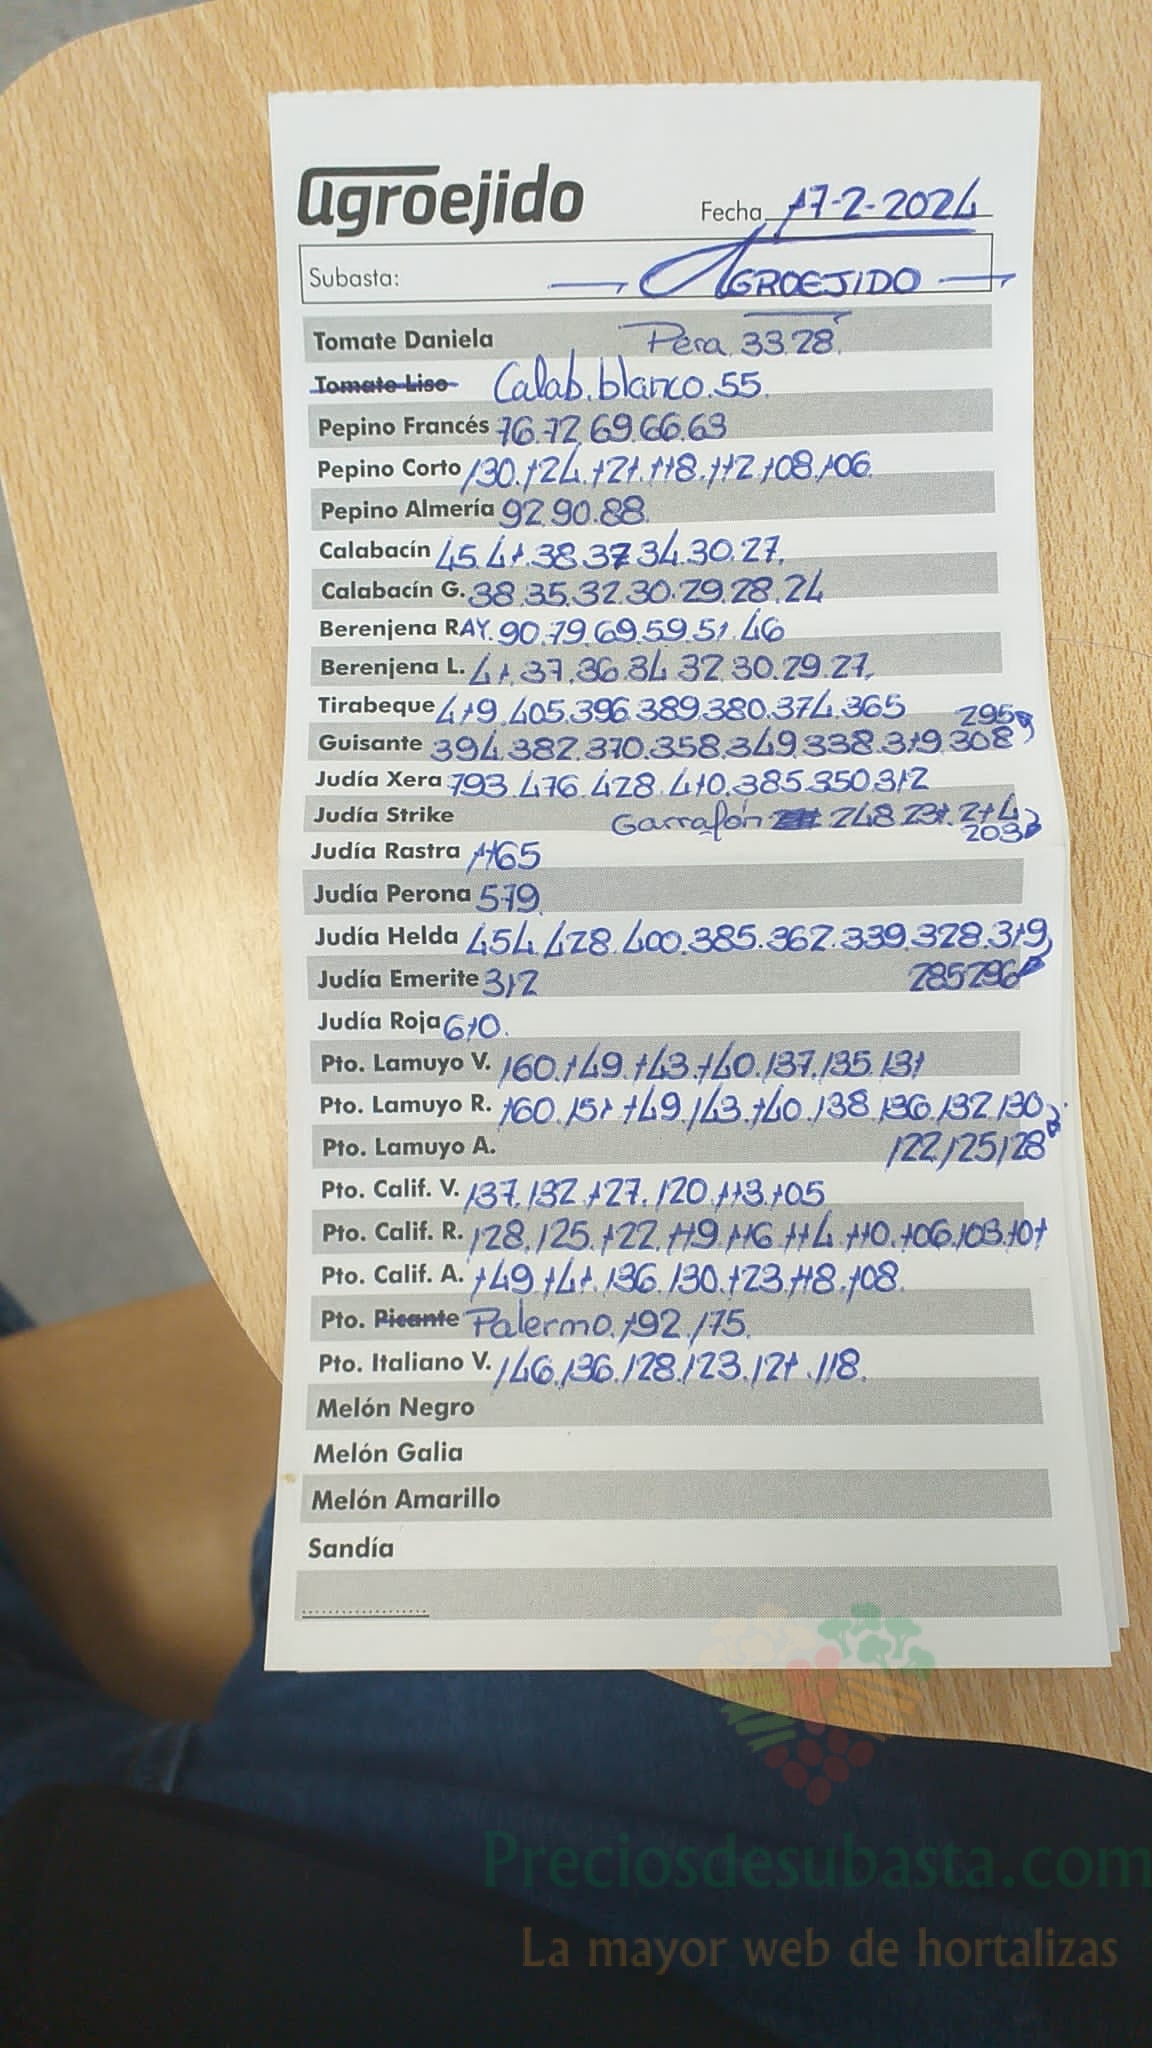 agroejido
Fecha 17-2-2024
Subasta: AGROEJIDO
Tomate Daniela Pera 33.28.
Tomate Liso Calab. blanco. 55.
Pepino Francés 76.72.69.66.63
Pepino Corto 130.124.121.118.112.108.106.
Pepino Almería 92.90.88.
Calabacín 45.41.38.37.34.30.27.
Calabacín G. 38.35.32.30.29.28.24
Berenjena RAY. 90.79.69.59.51.46
Berenjena L. 41.37.36.34.32.30.29.27.
Tirabeque 419.405.396.389.380.374.365
295
Guisante 394.382.370.358.349.338.319.308
Judía Xera 793.476.428.410.385.350.312
Judía Strike Garrafón 248.231.214
203
Judía Rastra 1165
Judía Perona 579.
Judía Helda 454.428.400.385.362.339.328.319
Judía Emerite 312 285 296
Judía Roja 610.
Pto. Lamuyo V. 160.149.143.140.137.135.131
Pto. Lamuyo R. 160.151.149.143.140.138.136.132.130
Pto. Lamuyo A. 122.125.128
Pto. Calif. V. 137.132.127.120.113.105
Pto. Calif. R. 128.125.122.119.116.114.110.106.103.101
Pto. Calif. A. 149.141.136.130.123.118.108.
Pto. Picante Palermo. 192.175.
Pto. Italiano V. 146.136.128.123.121.118.
Melón Negro
Melón Galia
Melón Amarillo
Sandía
Preciosdesubasta.com
La mayor web de hortalizas